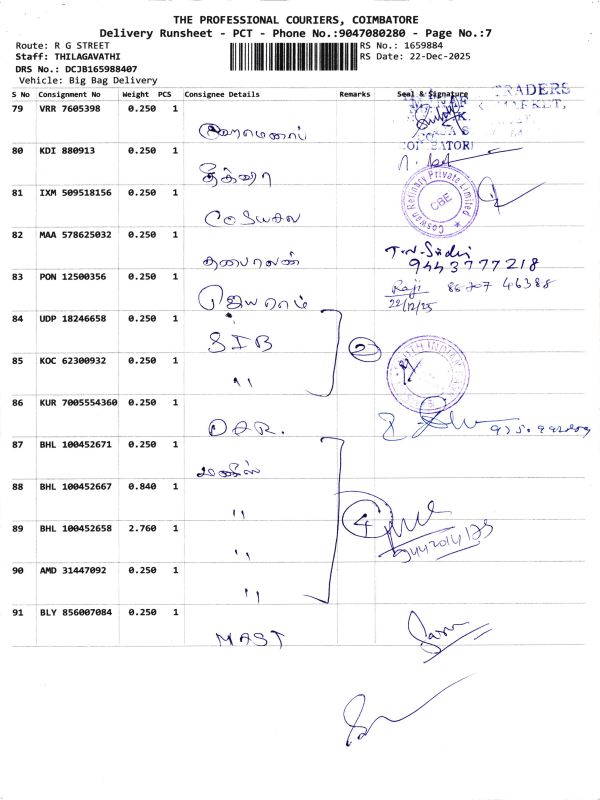 THE PROFESSIONAL COURIERS, COIMBATORE
Delivery Runsheet - PCT - Phone No.:9047080280 - Page No.:7
Route: R G STREET
Staff: THILAGAVATHI
DRS No.: DCJB165988407
Vehicle: Big Bag Delivery
RS No.: 1659884
RS Date: 22-Dec-2025
S No Consignment No Weight PCS Consignee Details Remarks Seal & Signature
TRADERS
79 VRR 7605398 0.250 1
80 KDI 880913 0.250 1
81 IXM 509518156 0.250 1
Coswan Refinary Private Limited
CBE
82 MAA 578625032 0.250 1
தனபாலன்
9443777218
83 PON 12500356 0.250 1
ஜெயராம்
Raji 86707 46388
22/12/25
84 UDP 18246658 0.250 1
SIB
2
85 KOC 62300932 0.250 1
"
86 KUR 7005554360 0.250 1
87 BHL 100452671 0.250 1
88 BHL 100452667 0.840 1
"
4
89 BHL 100452658 2.760 1
"
90 AMD 31447092 0.250 1
"
91 BLY 856007084 0.250 1
MAST